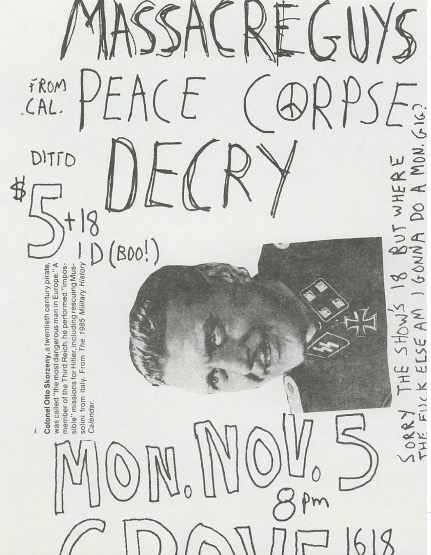 MASSACRE GUYS
FROM
CAL.
PEACE CORPSE
DITTO
DECRY
$5 +18
ID (BOO!)
Colonel Otto Skorzeny, a twentieth century pirate,
was called "the most dangerous man in Europe." A
member of the Third Reich, he performed "impos-
sible" missions for Hitler, including rescuing Mus-
solini from Italy. From The 1985 Military History
Calendar.
SORRY THE SHOW'S 18 BUT WHERE
THE FUCK ELSE AM I GONNA DO A MON. GIG?
MON. NOV. 5
8 pm
GROVE 1618